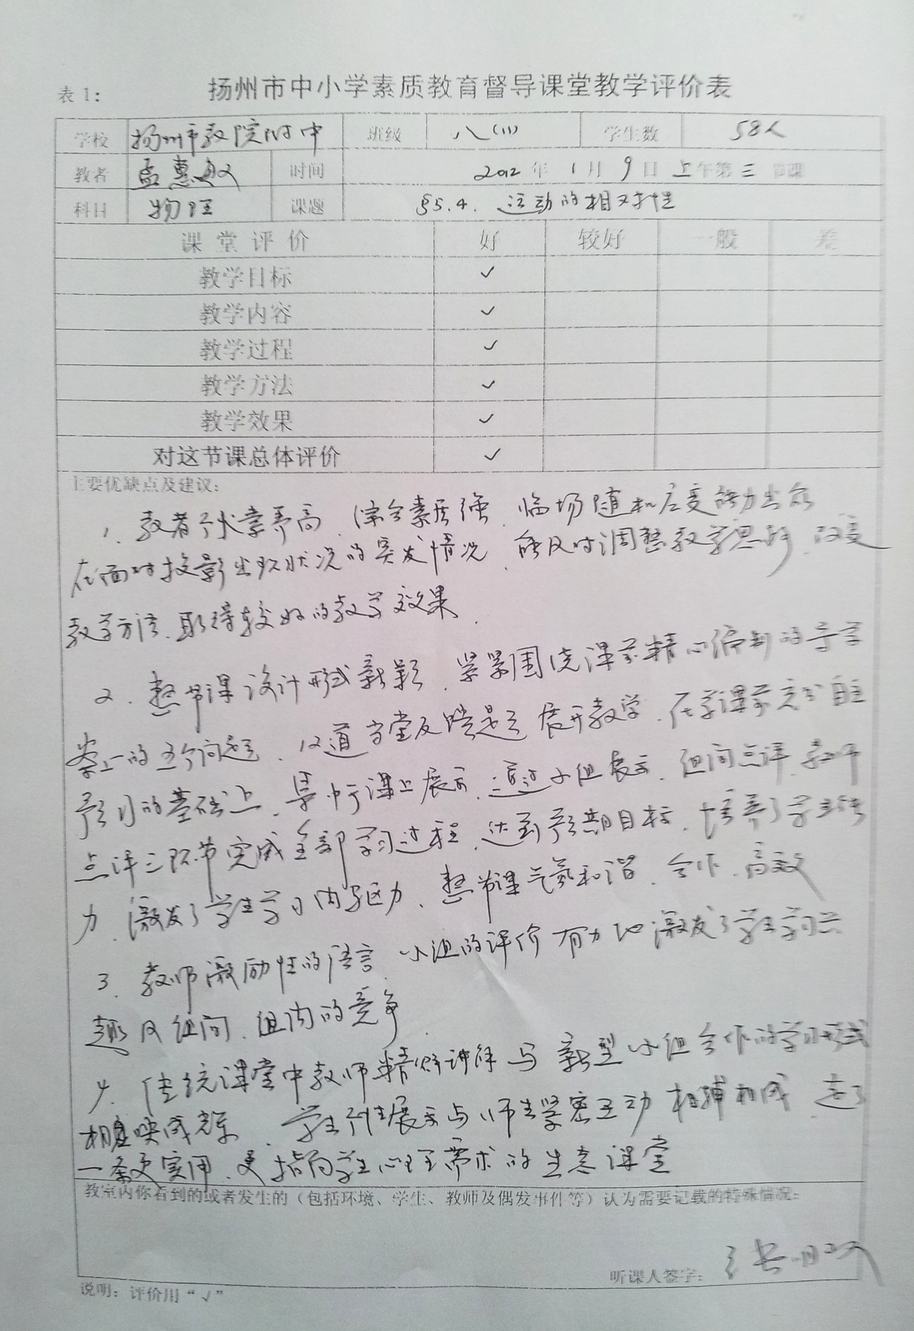 表1： 扬州市中小学素质教育督导课堂教学评价表
学校 扬州市教院附中 班级 八(11) 学生数 58人
教者 孟惠 时间 2012年1月9日上午第三节课
科目 物理 课题 §5.4. 运动的相对性
课堂评价 好 较好 一般 差
教学目标 ✓
教学内容 ✓
教学过程 ✓
教学方法 ✓
教学效果 ✓
对这节课总体评价 ✓
主要优缺点及建议：
1. 教者 素养高，综合素质强，临场随机应变能力出众
在面对投影出现状况的突发情况，能及时调整教学思路，改变
教学方法，取得较好的教学效果。
2. 整节课设计形式新颖，紧紧围绕课前精心编制的导学
案上的五个问题，12道当堂反馈题 展开教学，在学课前完成自主
预习的基础上，集中于课上展示，通过小组展示，组间点评，教师
点评三环节完成全部学习过程，达到预期目标，培养了学生能
力，激发了学生学习内驱力，整节课气氛和谐、合作、高效
3. 教师激励性的语言，小组的评价有力地激发了学生学习兴
趣及组间、组内的竞争。
4. 传统课堂中教师精彩讲解与新型小组合作的学习形式
相映成 ，学生 展示与师生紧密互动 相辅相成，走了
一条更实用，更指向学生心理需求的生态课堂
教室内你看到的或者发生的（包括环境、学生、教师及偶发事件等）认为需要记载的特殊情况：
听课人签字：
说明：评价用“√”